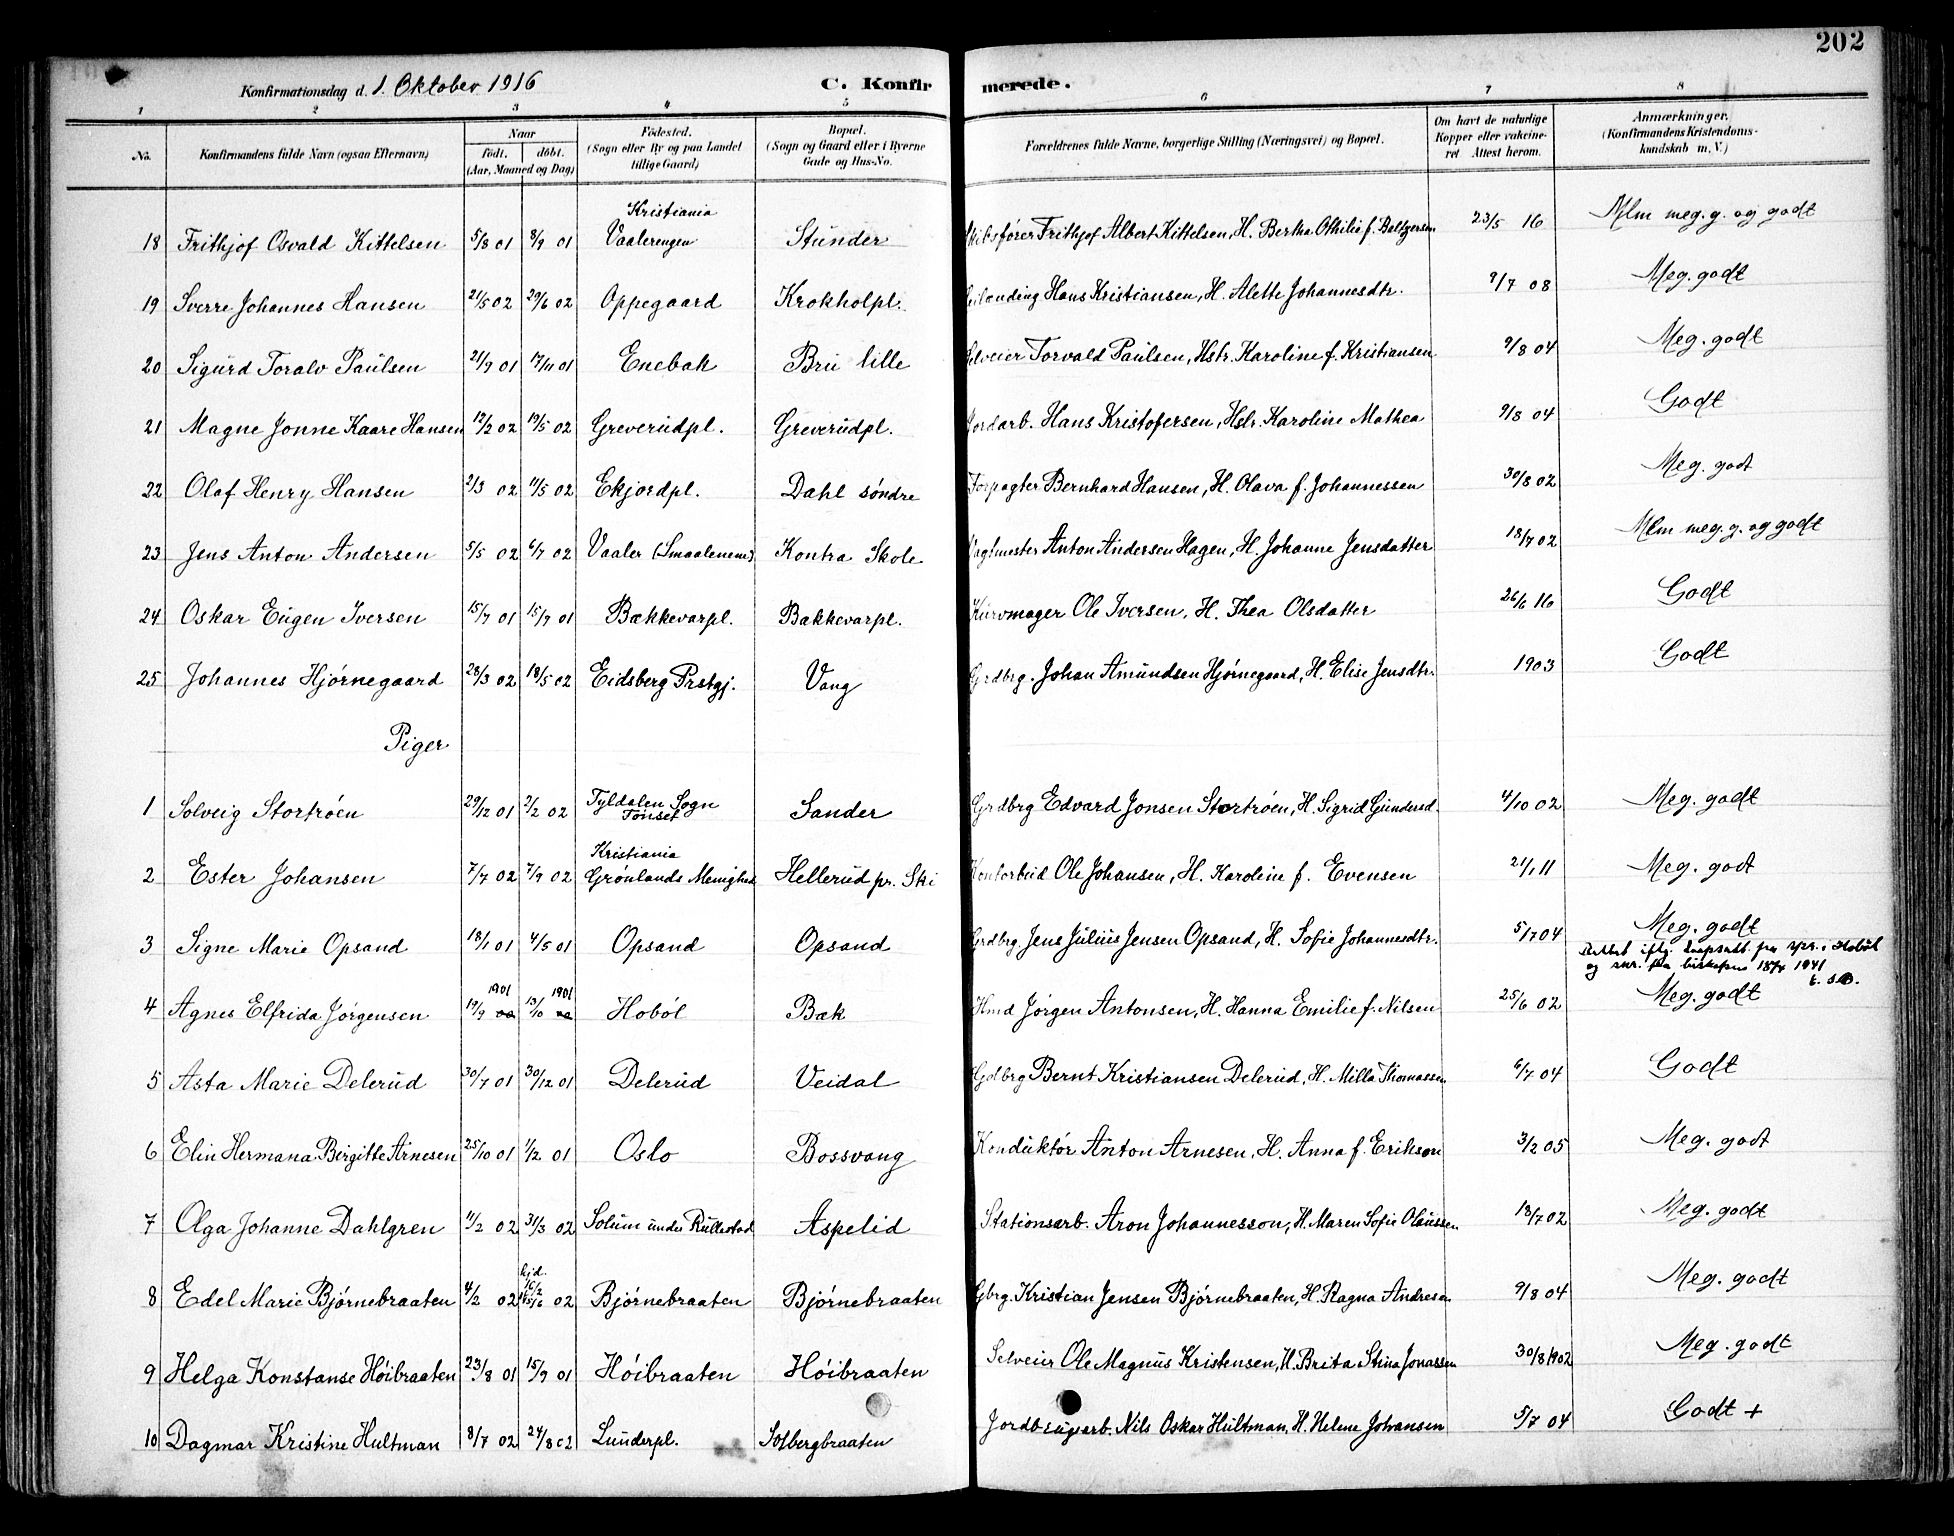 202
Konfirmationsdag d. 1. Oktober 1916 C. Konfir merede.
1 2 3 4 5 6 7 8
No. Konfirmandens fulde Navn (ogsaa Efternavn) Naar født. døbt. (Aar, Maaned og Dag) Fødested. (Sogn eller By og paa Landet tillige Gaard) Bopæl. (Sogn og Gaard eller i Byerne Gade og Hus-No. Forældrenes fulde Navne, borgerlige Stilling (Næringsvei) og Bopæl. Om havt de naturlige Kopper eller vakcineret Attest herom. Anmærkninger. (Konfirmandens Kristendomskundskab m. V.)
18 Frithjof Osvald Kittelsen 5/8 01 8/9 01 Kristiania Vaalerengen Stunder Frithjof Albert Kittelsen, H. Bertha Othilie f. Baltzersen 23/5 16 Mlm meg. g. og godt
19 Sverre Johannes Hansen 21/5 02 29/6 02 Oppegaard Krokholpl. Hans Kristiansen, H. Alette Johannesdtr. 9/7 08 Meg. godt
20 Sigurd Toralv Paulsen 21/9 01 17/11 01 Enebak Bru lille Selveier Torvald Paulsen, Hstr. Karoline f. Kristiansen 9/8 04 Meg. godt
21 Magne Jonne Kaare Hansen 12/2 02 19/5 02 Greverudpl. Greverudpl. Jordarb. Hans Kristofersen, Hstr. Karoline Mathea 9/8 04 Godt
22 Olaf Henry Hansen 2/3 02 11/5 02 Ekjordpl. Dahl søndre Forpagter Bernhard Hansen, H. Olava f. Johannessen 30/8 02 Meg. godt
23 Jens Anton Andersen 5/5 02 6/7 02 Vaaler (Smaalenene) Kontra Skole Vagtmester Anton Andersen Hagen, H. Johanne Jensdatter 18/7 02 Mlm meg. g. og godt
24 Oskar Eugen Iversen 15/7 01 15/9 01 Bækkevarpl. Bakkevarpl. Kurvmager Ole Iversen, H. Thea Olsdatter 26/6 16 Godt
25 Johannes Hjørnegaard 28/3 02 18/5 02 Eidsberg Prstgj. Vang Grdbrg. Johan Amundsen Hjørnegaard, H. Elise Jensdtr. 1903 Godt
Piger
1 Solveig Stortrøen 29/12 01 2/2 02 Tyldalen Sogn Tønset Sander Grdbrg Edvard Jonsen Stortrøen, H. Sigrid Gundersd. 4/10 02 Meg. godt
2 Ester Johansen 7/7 02 7/9 02 Kristiania Grønlands Menighed Hellerud pr. Ski Kontorbud Ole Johansen, H. Karoline f. Evensen 21/1 11 Meg. godt
3 Signe Marie Opsand 18/1 01 4/5 01 Opsand Opsand Grdbrg. Jens Julius Jensen Opsand, H. Sofie Johannesdtr. 5/7 04 Meg. godt
Rettet iflg. fra i Hobøl
og fra biskopen 18/4 1941
4 Agnes Elfrida Jørgensen 19/9 1901 13/10 1901 Hobøl Bæk Hmd Jørgen Antonsen, H. Hanna Emilie f. Nilsen 25/6 02 Meg. godt
5 Asta Marie Delerud 30/7 01 30/12 01 Delerud Veidal Gdbrg Bernt Kristiansen Delerud, H. Milla Thomassen 6/7 04 Godt
6 Elin Hermana Birgitte Arnesen 25/10 01 1/2 01 Oslo Bossvang Konduktør Anton Arnesen, H. Anna f. Erikson 3/2 05 Meg. godt
7 Olga Johanne Dahlgren 11/2 02 31/3 02 Solum under Rullestad Aspelid Stationsarb. Aron Johannesson, H. Maren Sofie Olaussen 18/7 02 Meg. godt
8 Edel Marie Bjørnebraaten 4/2 02 hjd. 16/2 15/6 02 Bjørnebraaten Bjørnebraaten Gbrg. Kristian Jensen Bjørnebraaten, H. Ragna Andresen 9/8 04 Meg. godt
9 Helga Konstanse Høibraaten 23/8 01 15/9 01 Høibraaten Høibraaten Selveier Ole Magnus Kristensen, H. Brita Stina Jonassen 30/8 1902 Meg. godt
10 Dagmar Kristine Hultman 8/7 02 24/8 02 Lunderpl. Solbergbraaten Jordbrugsarb. Nils Oskar Hultman, H. Helene Johansen 5/7 04 Godt +